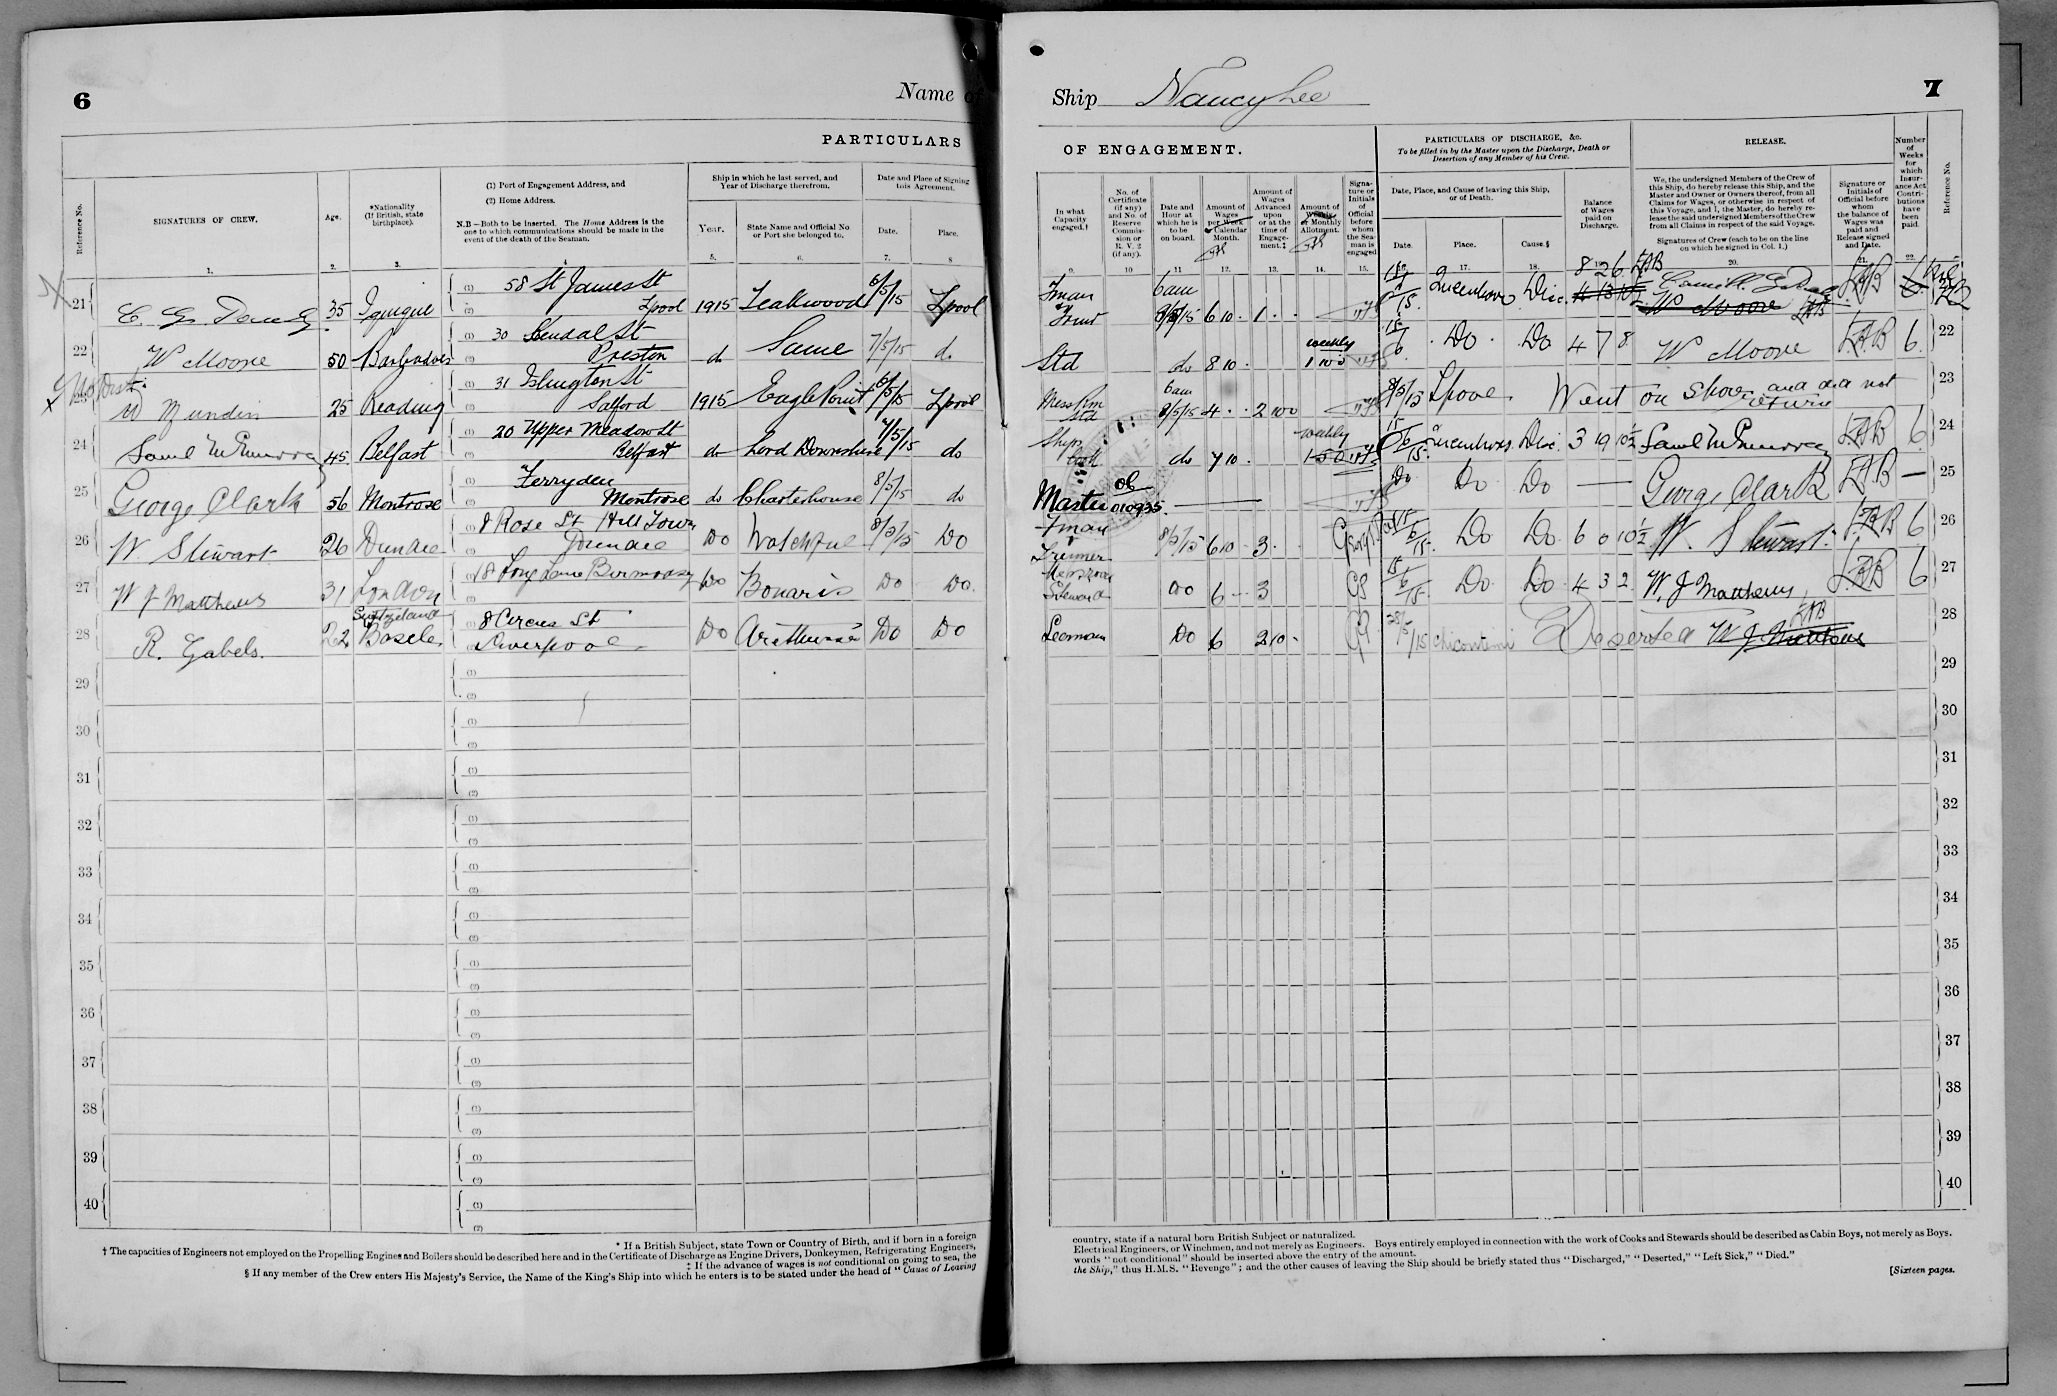 6
Name of
PARTICULARS
Reference No.
SIGNATURES OF CREW.
Age.
*Nationality
(If British, state
birthplace).
(1) Port of Engagement Address, and
(2) Home Address.
N.B.—Both to be inserted. The Home Address is the
one to which communications should be made in the
event of the death of the Seaman.
Ship in which he last served, and
Year of Discharge therefrom.
Year.
State Name and Official No.
or Port she belonged to.
Date and Place of Signing
this Agreement.
Date.
Place.
1. 2. 3. 4 5. 6. 7. 8
21 35 Iquique 58 St James St
Lpool 1915 Teakwood 6/5/15 Lpool
22 W Moore 50 Barbadoes 30 Kendal St
Preston do Same 7/5/15 do
23 W Mundin 25 Reading 31 Islington St
Salford 1915 Eagle Point 6/5/15 Lpool
24 45 Belfast 20 Upper Meadow St
Belfast do Lord Downshire 7/5/15 do
25 George Clark 56 Montrose Ferryden
Montrose do Charterhouse 8/5/15 do
26 W Stewart 26 Dundee 8 Rose St Hill Town
Dundee Do 8/5/15 Do
27 W J Matthews 31 London 18 Long Lane Bermondsey Do Bonaris Do Do.
28 R. Gabels. 22 Switzeland
Basele 8 Circus St
Liverpool. Do Do Do
29
30
31
32
33
34
35
36
37
38
39
40
* If a British Subject, state Town or Country of Birth, and if born in a foreign
† The capacities of Engineers not employed on the Propelling Engines and Boilers should be described here and in the Certificate of Discharge as Engine Drivers, Donkeymen, Refrigerating Engineers,
‡ If the advance of wages is not conditional on going to sea, the
§ If any member of the Crew enters His Majesty's Service, the Name of the King's Ship into which he enters is to be stated under the head of "Cause of Leaving
Ship Nancy Lee
7
OF ENGAGEMENT.
PARTICULARS OF DISCHARGE, &c.
To be filled in by the Master upon the Discharge, Death or
Desertion of any Member of his Crew.
RELEASE.
Number
of
Weeks
for
which
Insur-
ance Act
Contri-
butions
have
been
paid.
Reference No.
In what
Capacity
engaged.†
No. of
Certificate
(if any)
and No. of
Reserve
Commis-
sion or
R. V. 2
(if any).
Date and
Hour at
which he is
to be
on board.
Amount of
Wages
per Week
or Calendar
Month.
Amount of
Wages
Advanced
upon
or at the
time of
Engage-
ment.‡
Amount of
Weekly
or Monthly
Allotment.
Signa-
ture or
Initials
of
Official
before
whom
the Sea-
man is
engaged
Date, Place, and Cause of leaving this Ship,
or of Death.
Date.
Place.
Cause.§
Balance
of Wages
paid on
Discharge.
We, the undersigned Members of the Crew of
this Ship, do hereby release this Ship, and the
Master and Owner or Owners thereof, from all
Claims for Wages, or otherwise in respect of
this Voyage, and I, the Master, do hereby re-
lease the said undersigned Members of the Crew
from all Claims in respect of the said Voyage.
Signatures of Crew (each to be on the line
on which he signed in Col. 1.)
Signature or
Initials of
Official before
whom
the balance of
Wages was
paid and
Release signed
and Date.
9. 10 11 12. 13. 14. 15. 17. 18. 20. 21. 22.
Fman 6am Disc. 8 2 6
8/5/15 6 10 . 1 . . W Moore
Std do 8 10 . weekly Do Do 4 7 8 W Moore LAB 6. 22
Mess Rm
Std 6am
8/5/15 4 . . 2 10 0 8/5/15 Lpool Went on Shore and did not
return 23
Ships
Cook do 7 10 . weekly Disc. 3 19 10½ LAB 6 24
Master 010935. Do Do Do — George Clark LAB — 25
Fman
Trimer 8/5/15 6 10 3 . Do Do 6 0 10½ W. Stewart. LAB 6 26
Messroom
Steward Do 6 3 Do Do 4 3 2 W. J Matthews, LAB 6 27
Seaman Do 6 2 10 28/5/15 Chicoutimi Deserted LAB 28
29
30
31
32
33
34
35
36
37
38
39
40
country, state if a natural born British Subject or naturalized.
Electrical Engineers, or Winchmen, and not merely as Engineers. Boys entirely employed in connection with the work of Cooks and Stewards should be described as Cabin Boys, not merely as Boys.
words "not conditional" should be inserted above the entry of the amount.
the Ship," thus H.M.S. "Revenge"; and the other causes of leaving the Ship should be briefly stated thus "Discharged," "Deserted," "Left Sick," "Died."
[Sixteen pages.